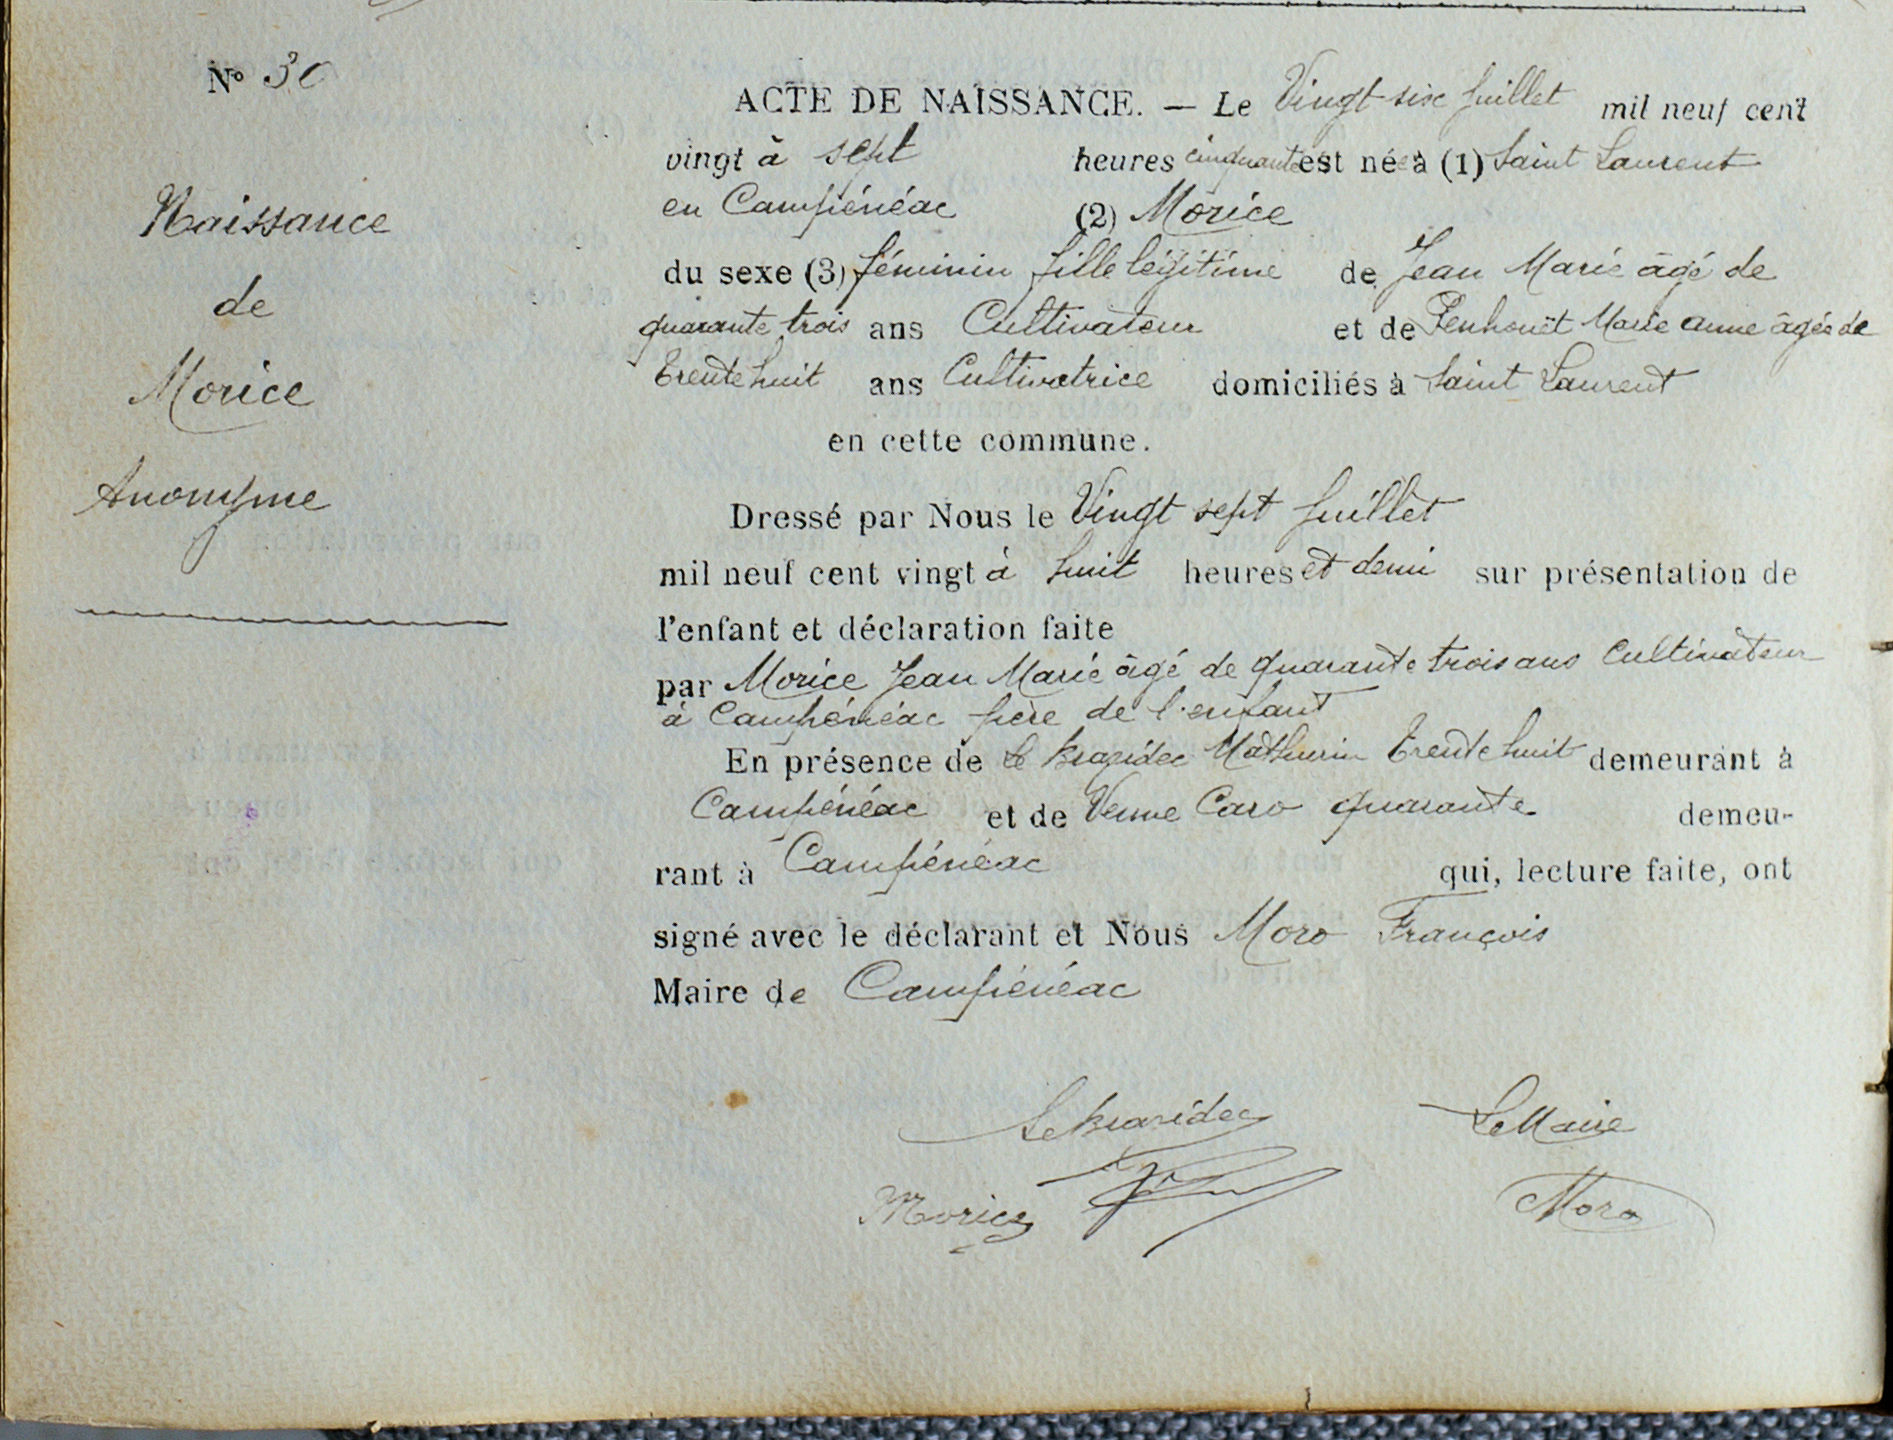 N° 30
Naissance
de
Morice
Anonyme
ACTE DE NAISSANCE. — Le Vingt-six juillet mil neuf cent
vingt à sept heures cinquante est née à (1) Saint Laurent
en Campénéac (2) Morice
du sexe (3) féminin fille légitime de Jean Marie âgé de
quarante trois ans Cultivateur et de Penhouët Marie Anne âgée de
Trente huit ans Cultivatrice domiciliés à Saint Laurent
en cette commune.
Dressé par Nous le Vingt sept juillet
mil neuf cent vingt à huit heures et demi sur présentation de
l'enfant et déclaration faite
par Morice Jean Marie âgé de quarante trois ans Cultivateur
à Campénéac père de l'enfant
En présence de Le Brazidec Mathurin Trente huit demeurant à
Campénéac et de Caro quarante demeu-
rant à Campénéac qui, lecture faite, ont
signé avec le déclarant et Nous Moro François
Maire de Campénéac
Le Brazidec Le Maire
Morice Moro